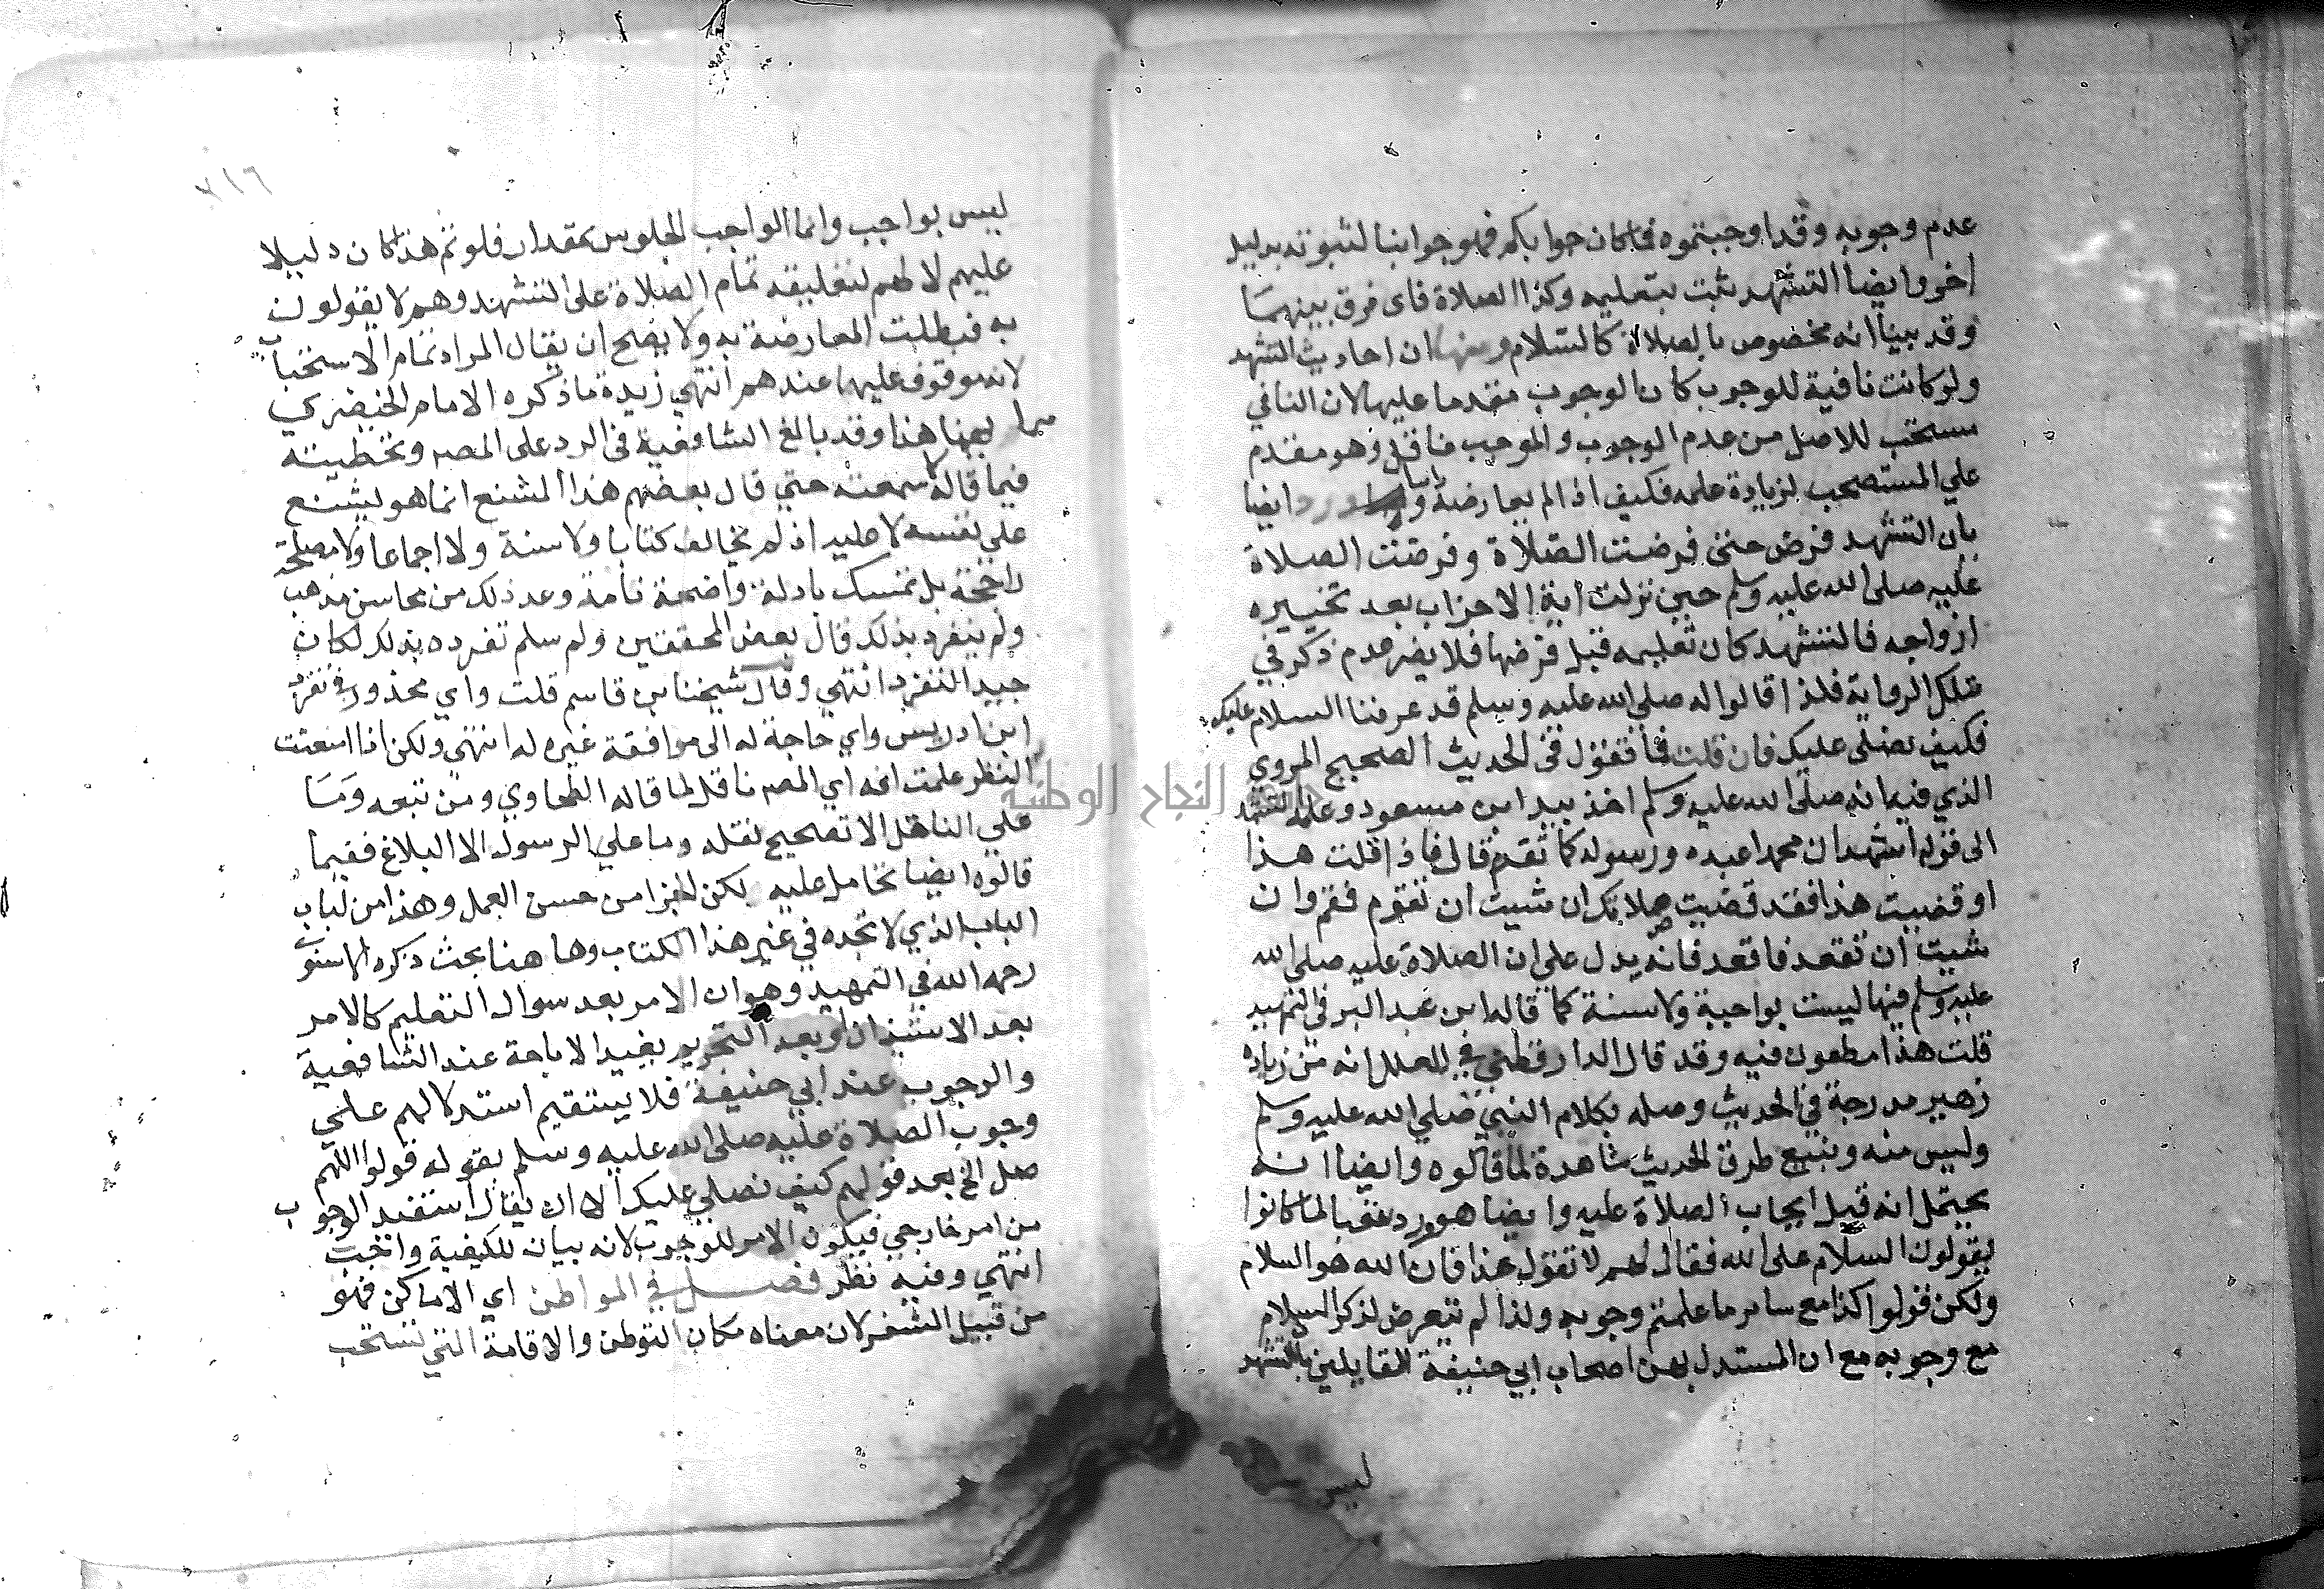 عدم وجوبه وقد اوجبتموه فما كان جوابكم فهو جوابنا لثبوته بدليل
اخر وايضا التشهد ثبت بتعليمه وكذا الصلاة فاى فرق بينهما
وقد بينا انه مخصوص بالصلاة كالسلام ومنها ان احاديث التشهد
ولو كانت نافية للوجوب كان الوجوب مقدما عليها لان النافي
مستحب للاصل من عدم الوجوب والموجب ناقل وهو مقدم
علي المستصحب لزيادة علمه فكيف اذا لم يعارضه وايضا
بان التشهد فرض حين فرضت الصلاة وفرضت الصلاة
عليه صلى الله عليه وسلم حين نزلت اية الاحزاب بعد تخييره
ازواجه فالتشهد كان تعليمه قبل فرضها فلا يضر عدم ذكر في
تلك الرواية فلذا قالوا له صلى الله عليه وسلم قد عرفنا السلام عليك
فكيف نصلى عليك فان قلت فما تقول في الحديث الصحيح المروي
الذي فيه انه صلى الله عليه وسلم اخذ بيد ابن مسعود وعلمه التشهد
الى قوله اشهد ان محمدا عبده ورسوله كما تقدم قال فاذا قلت هذا
او قضيت هذا فقد قضيت صلاتك ان شيت ان تقوم فقم وان
شيت ان تقعد فاقعد فانه يدل علي ان الصلاة عليه صلى الله
عليه وسلم فيها ليست بواجبة ولا سنة كما قاله ابن عبد البر في التمهيد
قلت هذا مطعون فيه وقد قال الدارقطني في العلل انه من زيادة
زهير مدرجة في الحديث وصله بكلام النبي صلى الله عليه وسلم
وليس منه وتتبع طرق الحديث شاهدة لما قالوه وايضا انه
يحتمل انه قبل ايجاب الصلاة عليه وايضا هو ورد عقبا لما كانوا
يقولون السلام على الله فقال لهم لا تقول هذا فان الله هو السلام
ولكن قولوا كذا مع ساير ما علمتم وجوبه ولذا لم نتعرض لذكر السلام
مع وجوبه مع ان المستدل بهن اصحاب ابي حنيفة القايلين بالتشهد
ليس
٣١٦
ليس بواجب وانما الواجب الجلوس بمقدار فلو تم هذا كان دليلا
عليهم لا لهم لتعليقه تمام الصلاة على التشهد وهم لا يقولون
به فبطلت المعارضة به ولا يصح ان يقال المراد تمام الاستحباب
لانه موقوف عليها عندهم انتهي زبدة ما ذكره الامام الخيضري
مما يهمنا هنا وقد بالغ الشافعية في الرد على المصه وتخطيته
فيما قاله كما سمعته حتي قال بعضهم هذا المشنع انما هو ليشنع
علي نفسه لا عليه اذ لم يخالف كتابا ولا سنة ولا اجماعا ولا مصلحة
راجحة بل تمسك بادلة واضحة تامة وعد ذلك من محاسن مذهبه
ولم ينفرد بذلك قال بعض المحققين ولم سلم تفرده بذلك لكان
حبيد التفرد انتهي وقال شيخنا بن قاسم قلت واي محذور في تفرد
ابن ادريس واي حاجة له الى موافقة غيره له انتهي ولكن اذا امعنت
النظر علمت انه اي المصه ناقل لما قاله الطحاوي ومن تبعه وما
علي الناقل الا تصحيح نقله وما علي الرسول الا البلاغ ففيما
قالوه ايضا تحامل عليه لكن الجزا من حسن العمل وهذا من لباب
الباب الذي لا تجده في غير هذا الكتاب وها هنا بحث ذكره الاسنو
رحمه الله في التمهيد وهو ان الامر بعد سوال التعليم كالامر
بعد الاستيذان او بعد التحريم يفيد الاباحة عند الشافعية
والوجوب عند ابي حنيفة فلا يستقيم استدلالهم علي
وجوب الصلاة عليه صلى الله عليه وسلم بقوله قولوا اللهم
صل الخ بعد قولهم كيف نصلي عليك الا ان يقال استفيد الوجوب
من امر خارجي فيكون الامر للوجوب لانه بيان للكيفية واجبة
انتهي وفيه نظر فصل في المواطن اي الاماكن فهو
من قبيل المشفر لان معناه مكان التوطن والاقامة التي تستحب
جامعة النجاح الوطنية